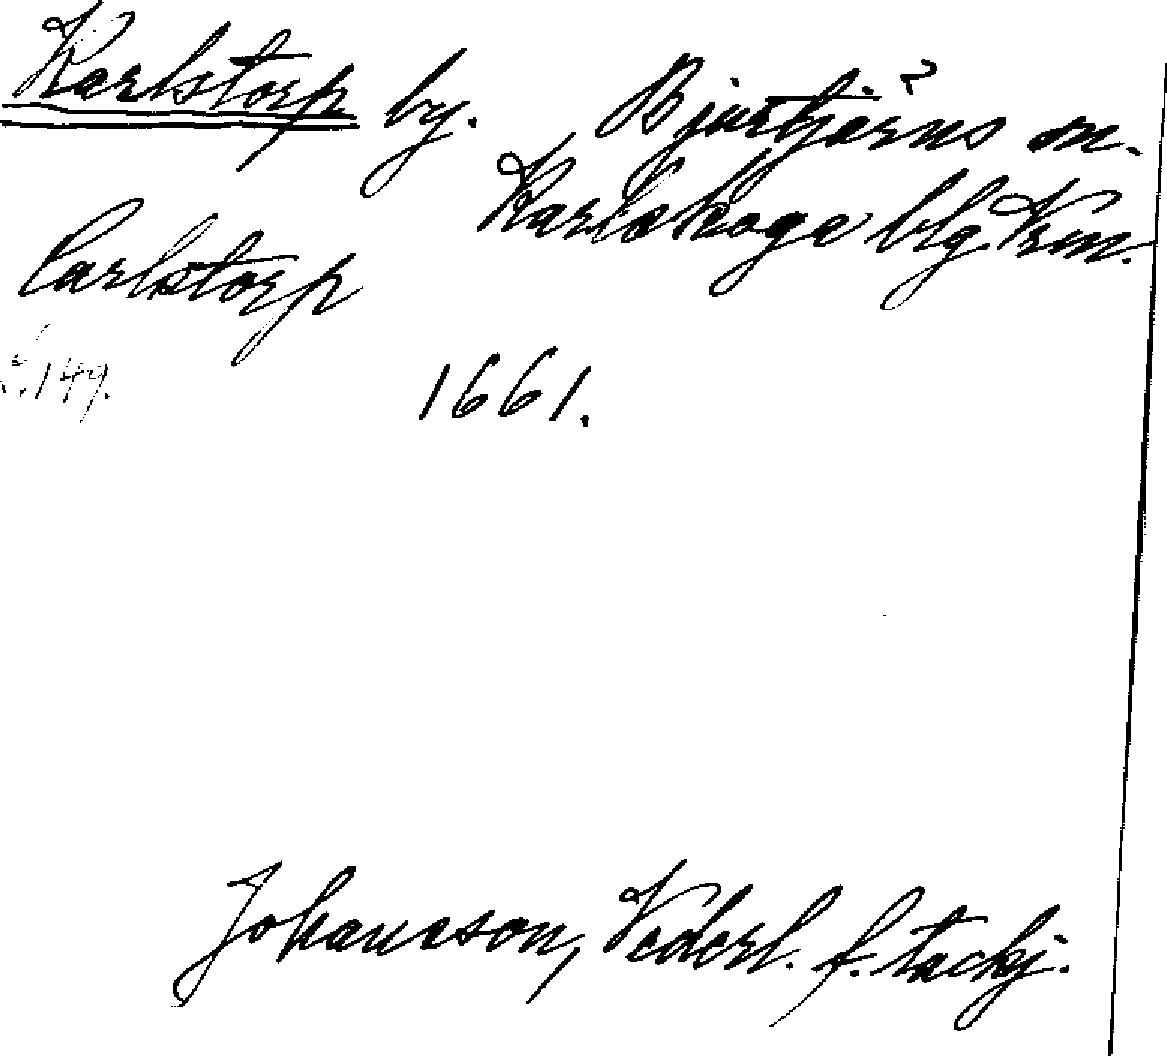 Karlstorp by. Bjurtjärns ? m.
Karlskoga blg. Vrm.
Carlstorp
s. 149.
1661.
Johansson, Vederl. f. tackj.